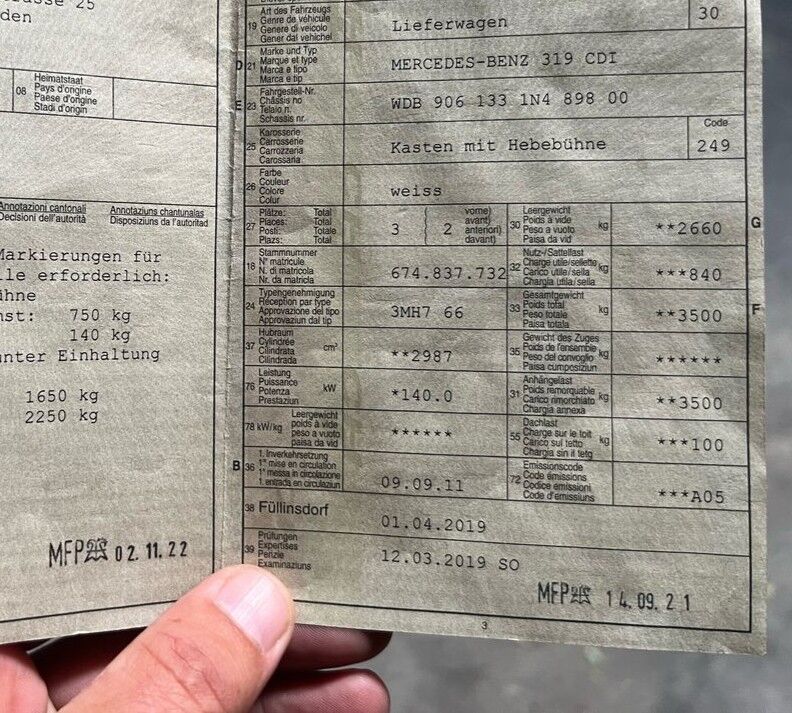 strasse 25
den
08
Heimatstaat
Pays d'origine
Paese d'origine
Stadi d'origin
Annotazioni cantonali
Decisioni dell'autorità
Annotaziuns chantunalas
Disposiziuns da l'autoritad
Markierungen für
lle erforderlich:
ühne
nst: 750 kg
140 kg
unter Einhaltung
1650 kg
2250 kg
MFP 02.11.22
19
Art des Fahrzeugs
Genre de véhicule
Genere di veicolo
Gener dal vehichel
Lieferwagen
30
D 21
Marke und Typ
Marque et type
Marca e tipo
Marca e tip
MERCEDES-BENZ 319 CDI
E 23
Fahrgestell-Nr.
Châssis no
Telaio n.
Schassis nr.
WDB 906 133 1N4 898 00
25
Karosserie
Carrosserie
Carrozzeria
Carossaria
Kasten mit Hebebühne
Code
249
26
Farbe
Couleur
Colore
Colur
weiss
27
Plätze: Total
Places: Total
Posti: Totale
Plazs: Total
3
2
vorne)
avant)
anteriori)
davant)
30
Leergewicht
Poids à vide
Peso a vuoto
Paisa da vid
kg
**2660
G
18
Stammnummer
N° matricule
N. di matricola
Nr. da matricla
674.837.732
32
Nutz-/Sattellast
Charge utile/sellette
Carico utile/sella
Chargia utila/sella
kg
***840
24
Typengenehmigung
Réception par type
Approvazione del tipo
Approvaziun dal tip
3MH7 66
33
Gesamtgewicht
Poids total
Peso totale
Paisa totala
kg
**3500
F
37
Hubraum
Cylindrée
Cilindrata
Cilindrada
cm³
**2987
35
Gewicht des Zuges
Poids de l'ensemble
Peso del convoglio
Paisa cumposiziun
kg
******
76
Leistung
Puissance
Potenza
Prestaziun
kW
*140.0
31
Anhängelast
Poids remorquable
Carico rimorchiato
Chargia annexa
kg
**3500
78 kW/kg
Leergewicht
poids à vide
peso a vuoto
paisa da vid
******
55
Dachlast
Charge sur le toit
Carico sul tetto
Chargia sin il tetg
kg
***100
B 36
1. Inverkehrsetzung
1re mise en circulation
1a messa in circolazione
1. entrada en circulaziun
09.09.11
72
Emissionscode
Code émissions
Codice emissioni
Code d'emissiuns
***A05
38 Füllinsdorf
01.04.2019
39
Prüfungen
Expertises
Perizie
Examinaziuns
12.03.2019 SO
MFP 14.09.21
3